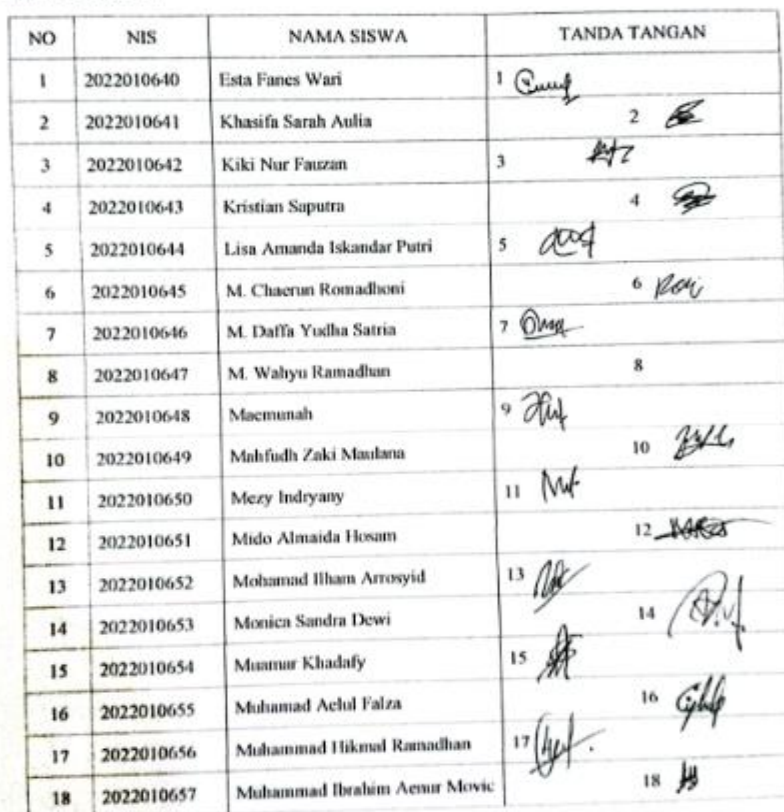 NO NIS NAMA SISWA TANDA TANGAN
1 2022010640 Esta Fanes Wari 1
2 2022010641 Khasifa Sarah Aulia 2
3 2022010642 Kiki Nur Fauzan 3
4 2022010643 Kristian Saputra 4
5 2022010644 Lisa Amanda Iskandar Putri 5
6 2022010645 M. Chaerun Romadhoni 6
7 2022010646 M. Daffa Yudha Satria 7
8 2022010647 M. Wahyu Ramadhan 8
9 2022010648 Maemunah 9
10 2022010649 Mahfudh Zaki Maulana 10
11 2022010650 Mezy Indryany 11
12 2022010651 Mido Almaida Hosam 12
13 2022010652 Mohamad Ilham Arrosyid 13
14 2022010653 Monica Sandra Dewi 14
15 2022010654 Muamar Khadafy 15
16 2022010655 Muhamad Aelul Falza 16
17 2022010656 Muhammad Hikmal Ramadhan 17
18 2022010657 Muhammad Ibrahim Aenur Movic 18